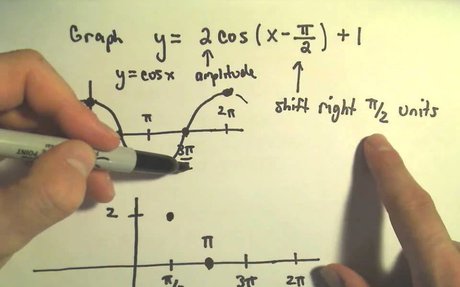 Graph y = 2 cos(x - π/2) + 1
y = cos x amplitude
shift right π/2 units
π 2π
3π
2
π
3π 2π